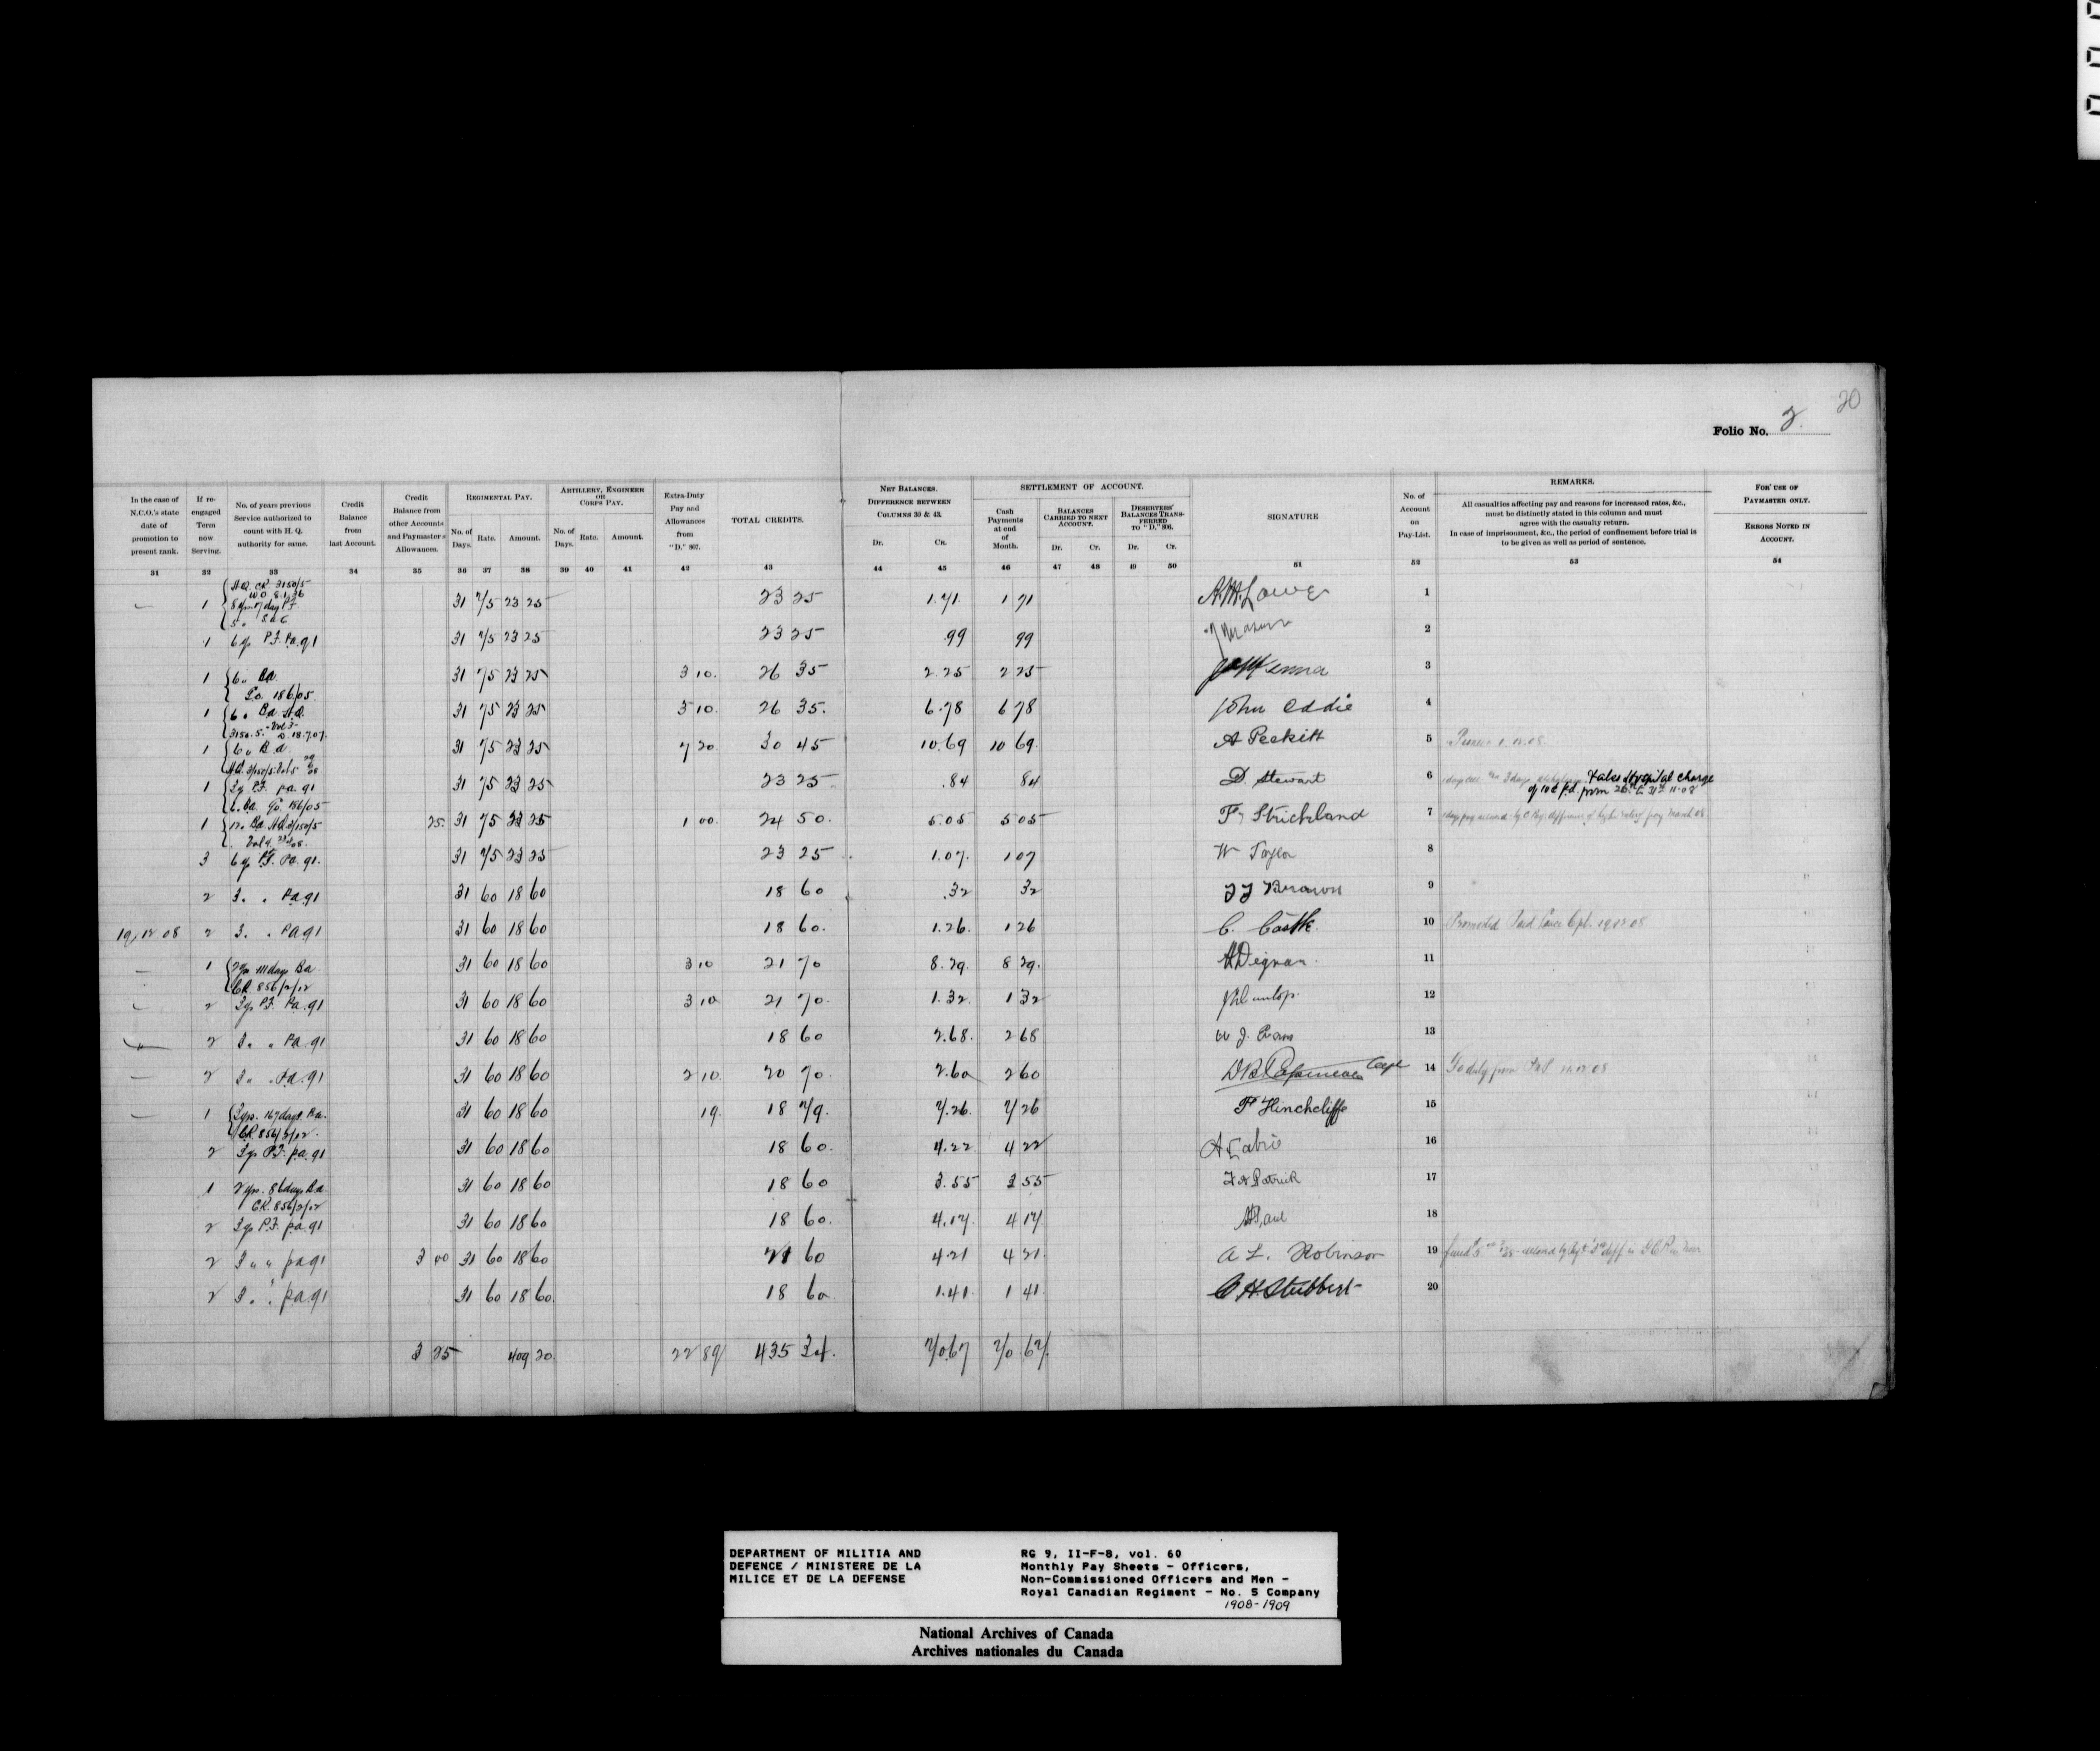 20
Folio No. 2.
In the case of N.C.O.'s state date of promotion to present rank.
If re-engaged Term now Serving.
No. of years previous Service authorized to count with H. Q. authority for same.
Credit Balance from last Account.
Credit Balance from other Accounts and Paymaster's Allowances.
REGIMENTAL PAY.
No. of Days. Rate. Amount.
ARTILLERY, ENGINEER OR CORPS PAY.
No. of Days. Rate. Amount.
Extra-Duty Pay and Allowances from "D." 807.
TOTAL CREDITS.
NET BALANCES. DIFFERENCE BETWEEN COLUMNS 30 & 43.
Dr. CR.
SETTLEMENT OF ACCOUNT.
Cash Payments at end of Month.
BALANCES CARRIED TO NEXT ACCOUNT.
Dr. Cr.
DESERTERS' BALANCES TRANSFERRED TO "D." 806.
Dr. Cr.
SIGNATURE
No. of Account on Pay-List.
REMARKS.
All casualties affecting pay and reasons for increased rates, &c., must be distinctly stated in this column and must agree with the casualty return.
In case of imprisonment, &c., the period of confinement before trial is to be given as well as period of sentence.
FOR USE OF PAYMASTER ONLY.
ERRORS NOTED IN ACCOUNT.
31 32 33 34 35 36 37 38 39 40 41 42 43 44 45 46 47 48 49 50 51 52 53 54
1 31 75 23 25 23 25 1.71. 1 71 A.M. Lowe 1
1 6 yr P.F. Pa. 91 31 75 23 25 23 25 .99 99 2
1 6 " Ba. G.o. 186/05. 31 75 23 25 3 10. 26 35 2.25 2 25 3
1 6 " Ba. H.Q. 31 75 23 25 3 10. 26 35. 6.78 6 78 John Eddie 4
1 6 " B.a. 31 75 23 25 7 20 30 45 10.69 10 69. A Peckitt 5
1 3 y P.F. pa. 91 6 " Ba. Go. 186/05 31 75 23 25 23 25 .84 84 D. Stewart 6 False Hospital charge
1 25. 31 75 23 25 1 00. 24 50. 5.05 5 05 F. Strickland 7
3 6 yr P.F. Pa. 91. 31 75 23 25 23 25 1.07. 1 07 W Taylor 8
2 3. " Pa 91 31 60 18 60 18 60 .32 32 Brown 9
19.12 08 2 3. " Pa 91 31 60 18 60 18 60. 1.26. 1 26 C. Castle. 10 Promoted Corpl. 19.12 08
1 C.R. 856/2/12 31 60 18 60 3 10 21 70 8.29. 8 29. Dignan. 11
2 3 yr P.F. Pa. 91 31 60 18 60 3 10 21 70. 1.32. 1 32 Dunlop. 12
2 3. " Pa. 91 31 60 18 60 18 60 2.68. 2 68 W J. Evans 13
2 3 " " Pa. 91 31 60 18 60 2 10. 20 70. 2.60 2 60 Capt 14 To duty from
1 3 yrs. 167 days Ba. C.R. 856/2/12. 31 60 18 60 19. 18 79. 7.26. 7 26 F Hinchcliffe 15
2 3 yr P.F. pa. 91 31 60 18 60 18 60. 4.22 4 22 A Labrie 16
1 2 yrs. 86 days Ba. C.R. 856/2/12 31 60 18 60 18 60 3.55 3 55 Patrick 17
2 3 yr P.F. pa. 91 31 60 18 60 18 60. 4.17. 4 17. Paul 18
2 3 " " pa 91 3 00 31 60 18 60 21 60 4.21 4 21. A L. Robinson 19
2 3 " " pa. 91 31 60 18 60. 18 60. 1.41. 1 41. C H. Stubbert 20
3 25 409 20. 22 89 435 34. 70.67 70 67.
DEPARTMENT OF MILITIA AND
DEFENCE / MINISTERE DE LA
MILICE ET DE LA DEFENSE
RG 9, II-F-8, vol. 60
Monthly Pay Sheets - Officers,
Non-Commissioned Officers and Men -
Royal Canadian Regiment - No. 5 Company
1908-1909
National Archives of Canada
Archives nationales du Canada